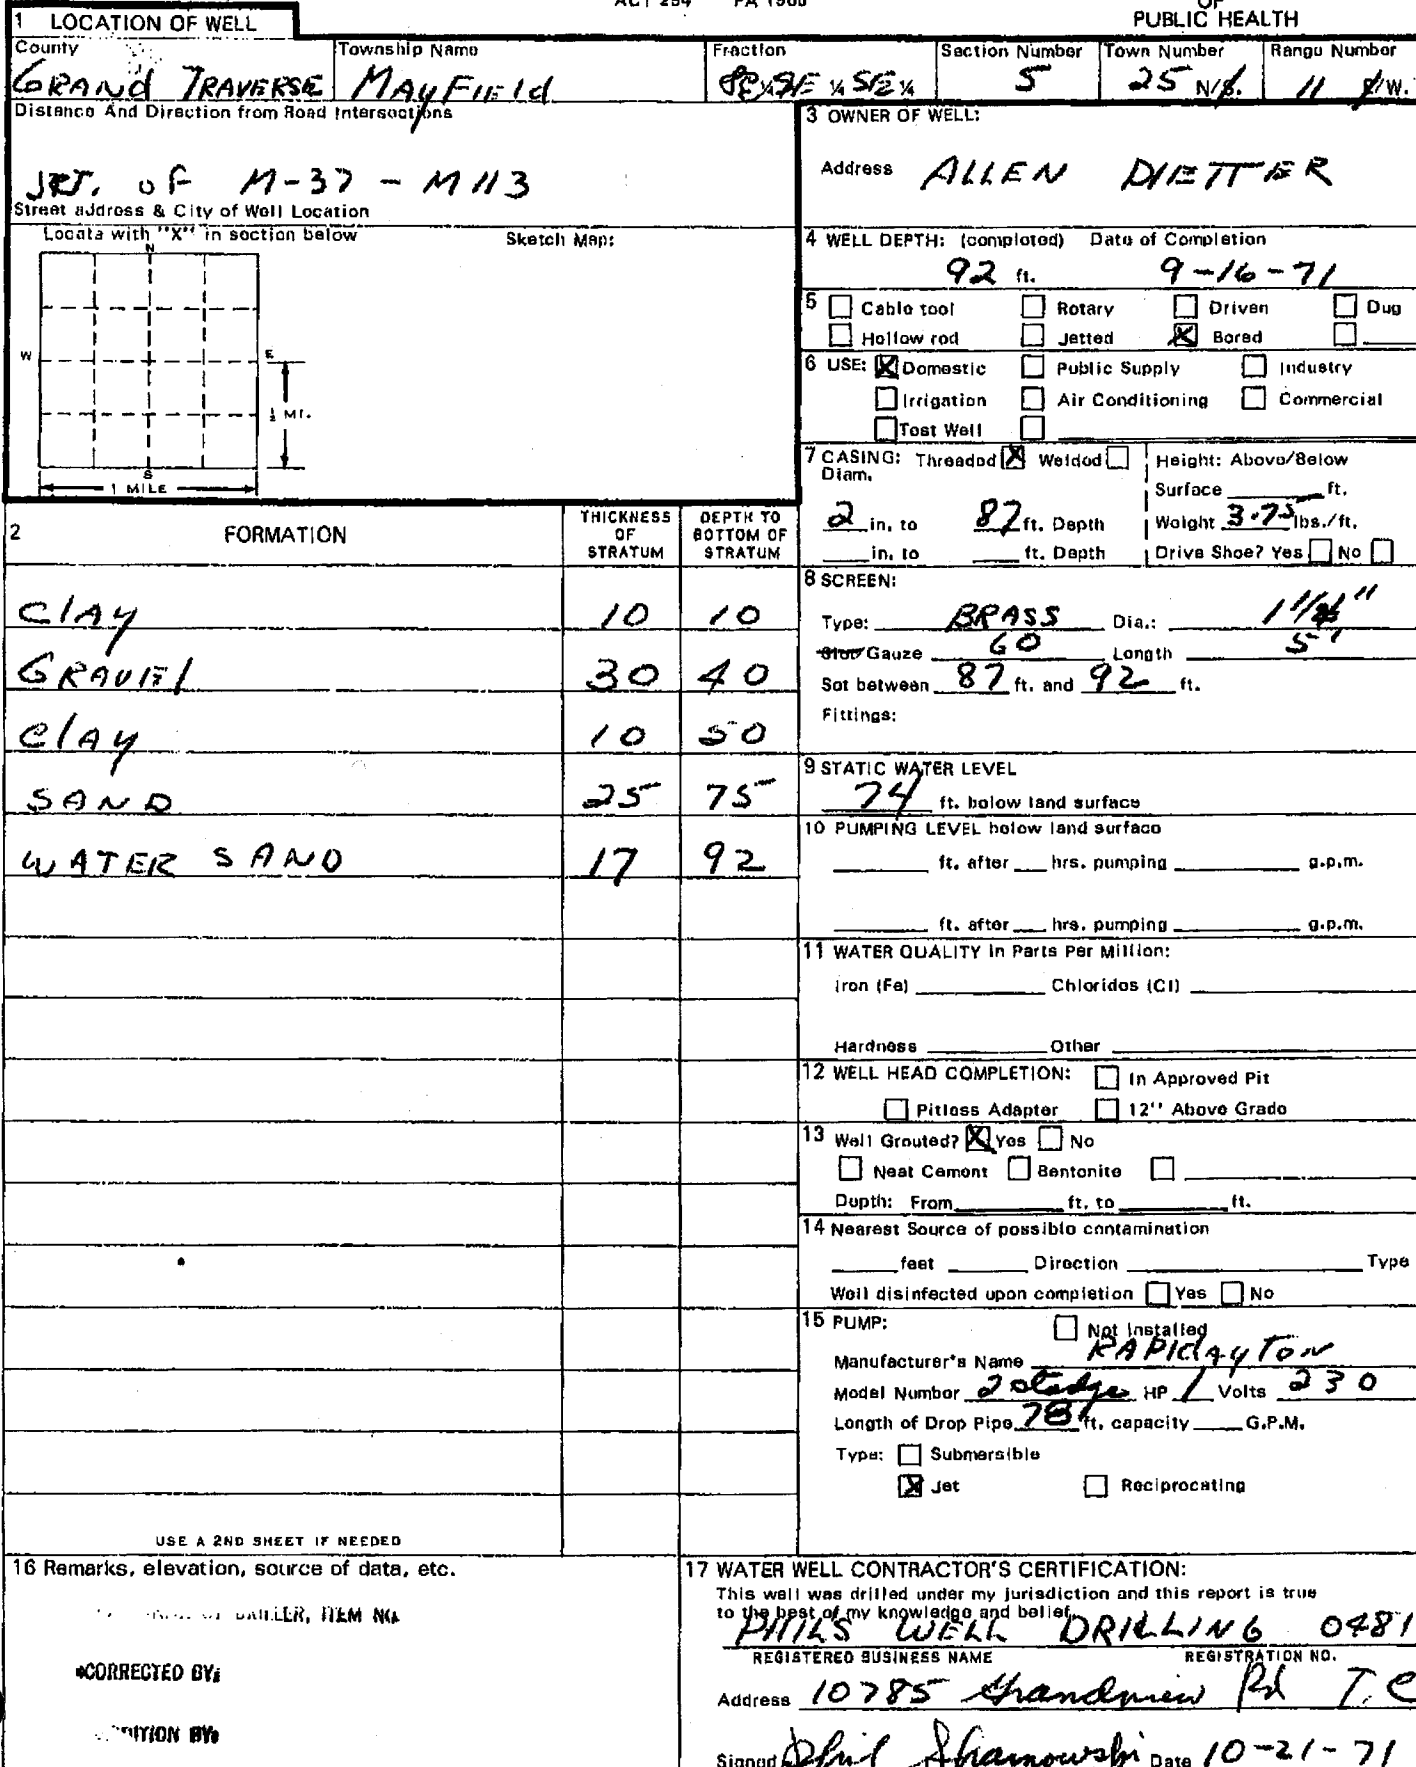 ACT 294 PA 1965
OF
PUBLIC HEALTH
1 LOCATION OF WELL
County Township Name Fraction Section Number Town Number Range Number
GRAND TRAVERSE MAYFIEld SE ¼ SE ¼ SE ¼ 5 25 N/S. 11 E/W.
Distance And Direction from Road Intersections
JCT. OF M-37 - M113
Street address & City of Well Location
Locate with "X" in section below Sketch Map:
N
W E
½ MI.
S
1 MILE
3 OWNER OF WELL:
Address ALLEN DIETTER
4 WELL DEPTH: (completed) Date of Completion
92 ft. 9-16-71
5 Cable tool Rotary Driven Dug
Hollow rod Jetted X Bored
6 USE: X Domestic Public Supply Industry
Irrigation Air Conditioning Commercial
Test Well
7 CASING: Threaded X Welded Height: Above/Below
Diam. Surface ft.
2 in. to 87 ft. Depth Weight 3.75 lbs./ft.
in. to ft. Depth Drive Shoe? Yes No
2 FORMATION THICKNESS OF STRATUM DEPTH TO BOTTOM OF STRATUM
ClAy 10 10
GRAVEl 30 40
ClAy 10 50
SAND 25 75
WATER SAND 17 92
USE A 2ND SHEET IF NEEDED
8 SCREEN:
Type: BRASS Dia.:
Slot/Gauze 60 Length 5'
Set between 87 ft. and 92 ft.
Fittings:
9 STATIC WATER LEVEL
74 ft. below land surface
10 PUMPING LEVEL below land surface
ft. after hrs. pumping g.p.m.
ft. after hrs. pumping g.p.m.
11 WATER QUALITY in Parts Per Million:
Iron (Fe) Chlorides (Cl)
Hardness Other
12 WELL HEAD COMPLETION: In Approved Pit
Pitless Adapter 12" Above Grade
13 Well Grouted? X Yes No
Neat Cement Bentonite
Depth: From ft. to ft.
14 Nearest Source of possible contamination
feet Direction Type
Well disinfected upon completion Yes No
15 PUMP: Not Installed
Manufacturer's Name RAPIdAyTON
Model Number 2 Stadge HP 1 Volts 230
Length of Drop Pipe 78' ft. capacity G.P.M.
Type: Submersible
X Jet Reciprocating
16 Remarks, elevation, source of data, etc.
OF DRILLER, ITEM NO.
*CORRECTED BY:
ADDITION BY:
17 WATER WELL CONTRACTOR'S CERTIFICATION:
This well was drilled under my jurisdiction and this report is true
to the best of my knowledge and belief.
PHILS WELL DRILLING 0481
REGISTERED BUSINESS NAME REGISTRATION NO.
Address 10785 Grandview Rd T.C
Signed Phil Date 10-21-71